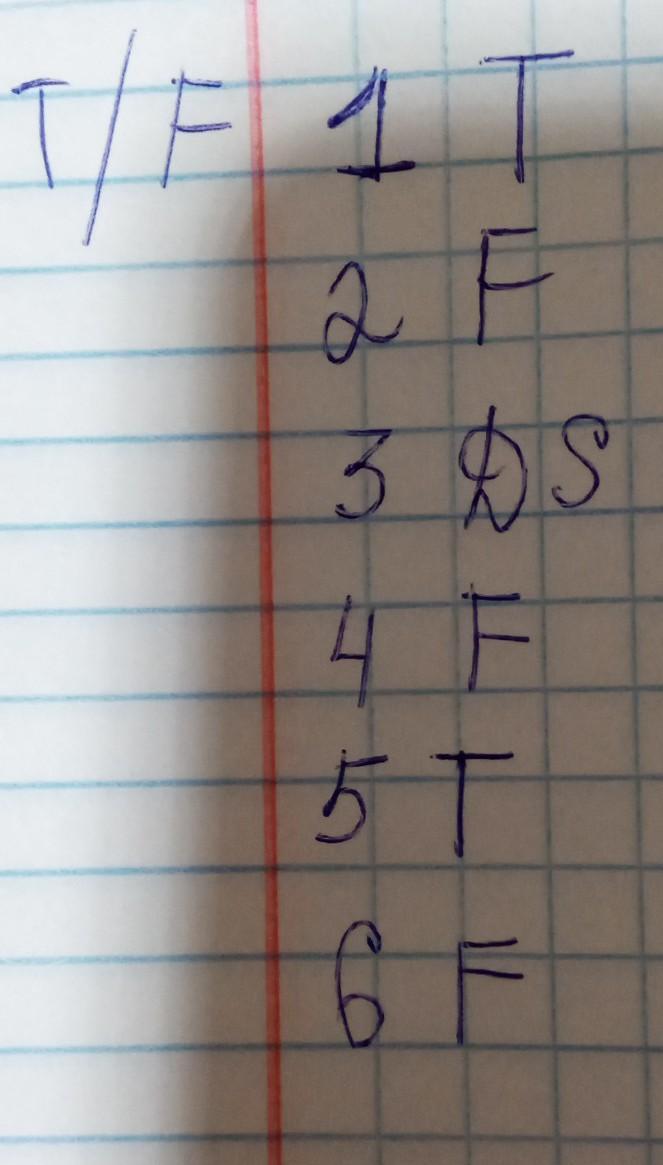 T/F 1 T
2 F
3 DS
4 F
5 T
6 F